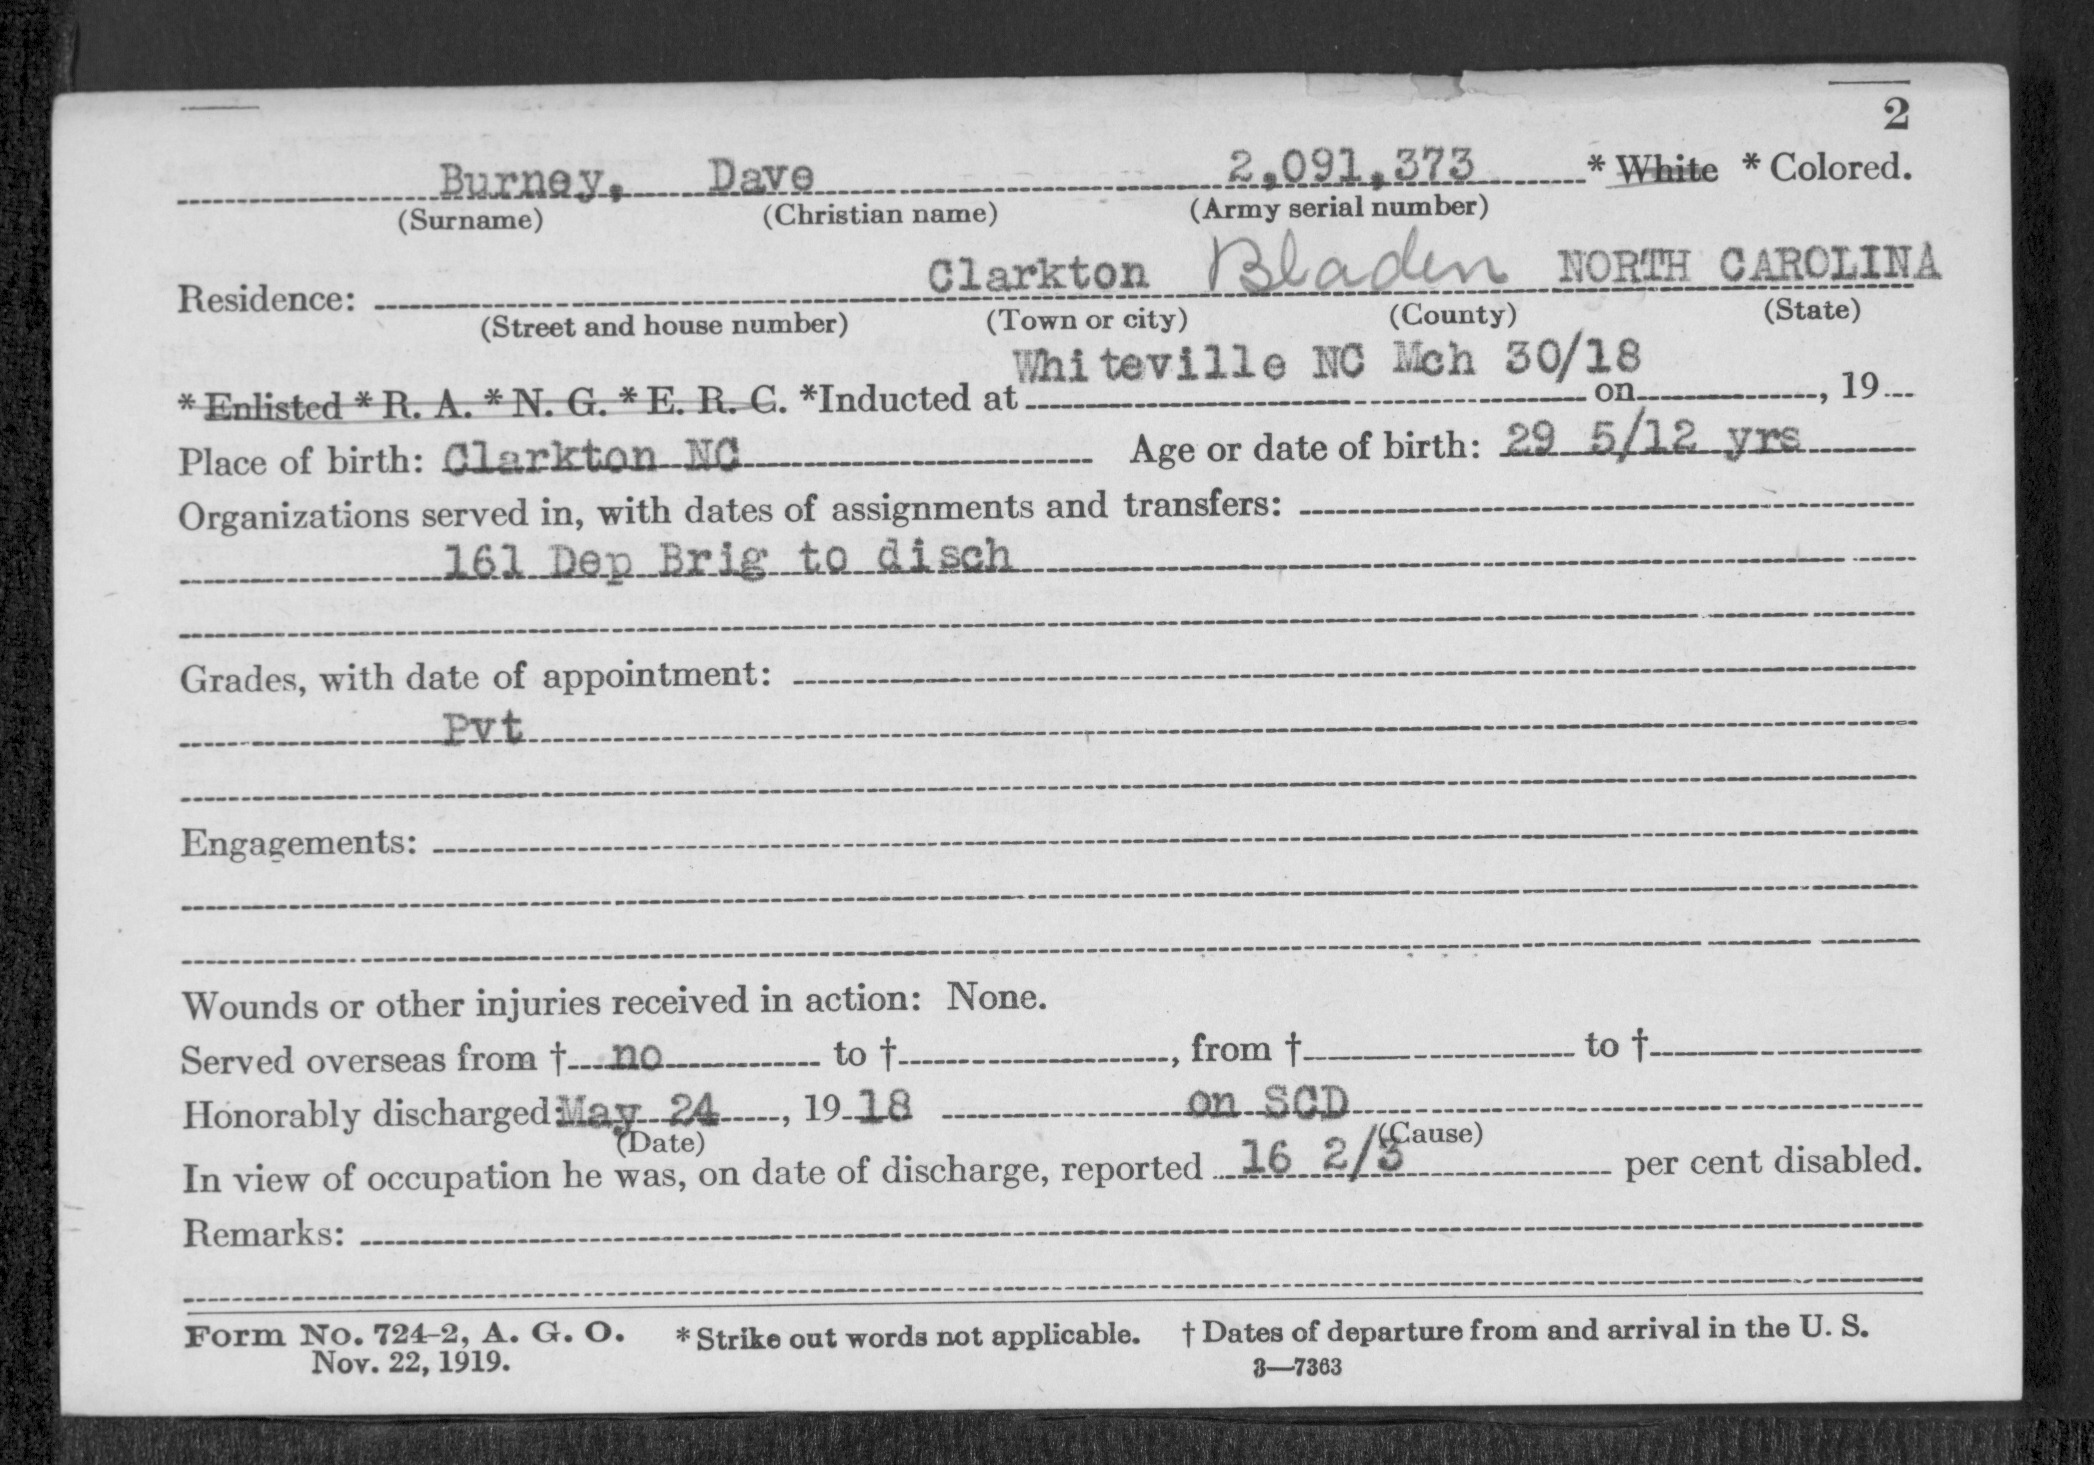 2
Burney, Dave 2,091,373 * White * Colored.
(Surname) (Christian name) (Army serial number)
Residence: Clarkton Bladen NORTH CAROLINA
(Street and house number) (Town or city) (County) (State)
Whiteville NC Mch 30/18
* Enlisted * R. A. * N. G. * E. R. C. *Inducted at on , 19
Place of birth: Clarkton NC Age or date of birth: 29 5/12 yrs
Organizations served in, with dates of assignments and transfers:
161 Dep Brig to disch
Grades, with date of appointment:
Pvt
Engagements:
Wounds or other injuries received in action: None.
Served overseas from † no to † , from † to †
Honorably discharged: May 24 , 19 18 on SCD
(Date) (Cause)
In view of occupation he was, on date of discharge, reported 16 2/3 per cent disabled.
Remarks:
Form No. 724-2, A. G. O. * Strike out words not applicable. † Dates of departure from and arrival in the U. S.
Nov. 22, 1919. 3—7363